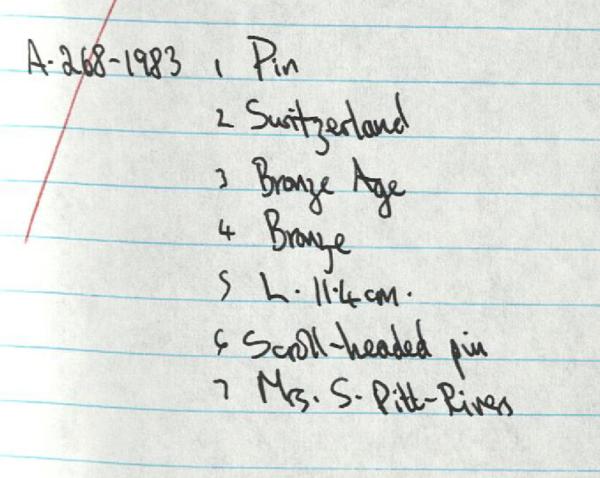 A.268-1983 1 Pin
2 Switzerland
3 Bronze Age
4 Bronze
5 L. 11.4cm.
6 Scroll-headed pin
7 Mrs. S. Pitt-Rivers